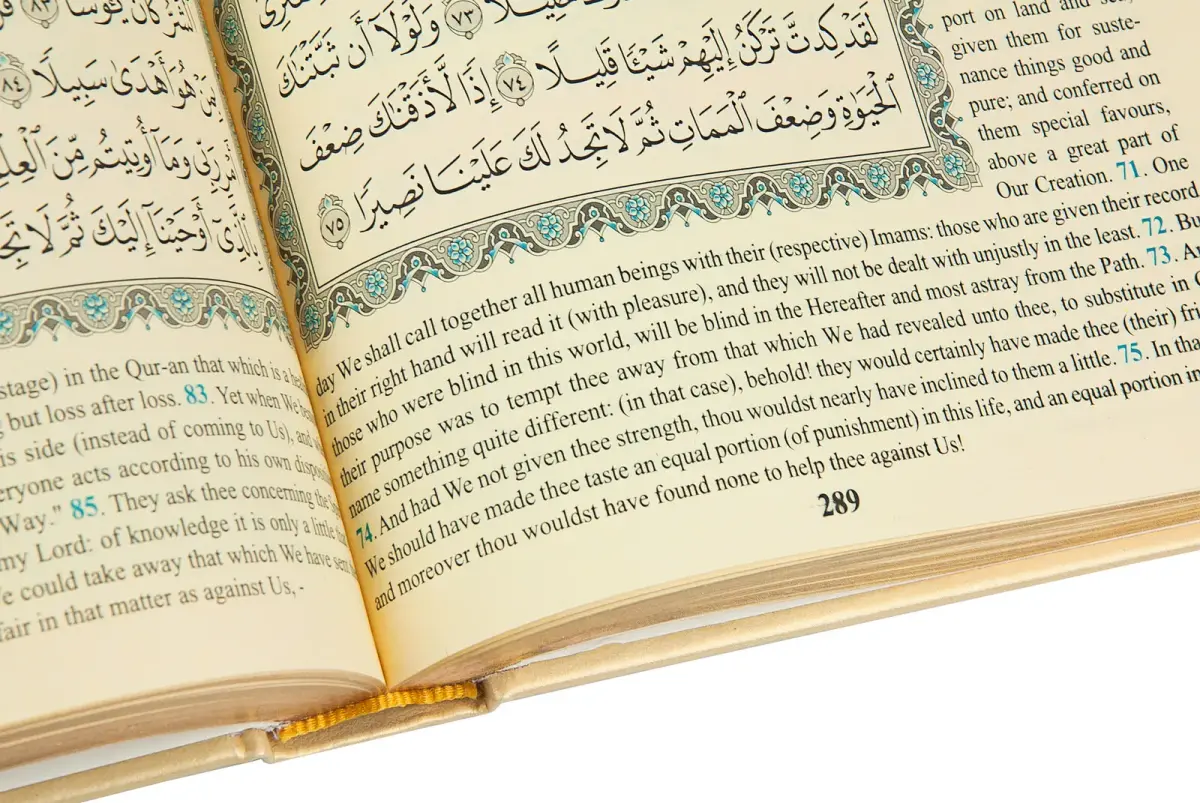 ٧٣ وَلَوْلَا أَن ثَبَّتْنَٰكَ
لَقَدْ كِدتَّ تَرْكَنُ إِلَيْهِمْ شَيْـًٔا قَلِيلًا ٧٤ إِذًا لَّأَذَقْنَٰكَ ضِعْفَ
ٱلْحَيَوٰةِ وَضِعْفَ ٱلْمَمَاتِ ثُمَّ لَا تَجِدُ لَكَ عَلَيْنَا نَصِيرًا ٧٥
port on land and
given them for suste-
nance things good and
pure; and conferred on
them special favours,
above a great part of
Our Creation. 71. One
day We shall call together all human beings with their (respective) Imams: those who are given their record
in their right hand will read it (with pleasure), and they will not be dealt with unjustly in the least. 72. But
those who were blind in this world, will be blind in the Hereafter and most astray from the Path. 73.
their purpose was to tempt thee away from that which We had revealed unto thee, to substitute in
name something quite different: (in that case), behold! they would certainly have made thee (their)
74. And had We not given thee strength, thou wouldst nearly have inclined to them a little. 75. In
We should have made thee taste an equal portion (of punishment) in this life, and an equal portion in
and moreover thou wouldst have found none to help thee against Us!
289
٨٣
مَنْ هُوَ أَهْدَىٰ سَبِيلًا ٨٤
رَبِّى وَمَآ أُوتِيتُم مِّنَ
بِٱلَّذِىٓ أَوْحَيْنَآ إِلَيْكَ ثُمَّ لَا
stage) in the Qur-an that which is a
but loss after loss. 83. Yet when We
side (instead of coming to Us), and
acts according to his own
Way." 85. They ask thee concerning the
my Lord: of knowledge it is only a little
We could take away that which We have
in that matter as against Us,-